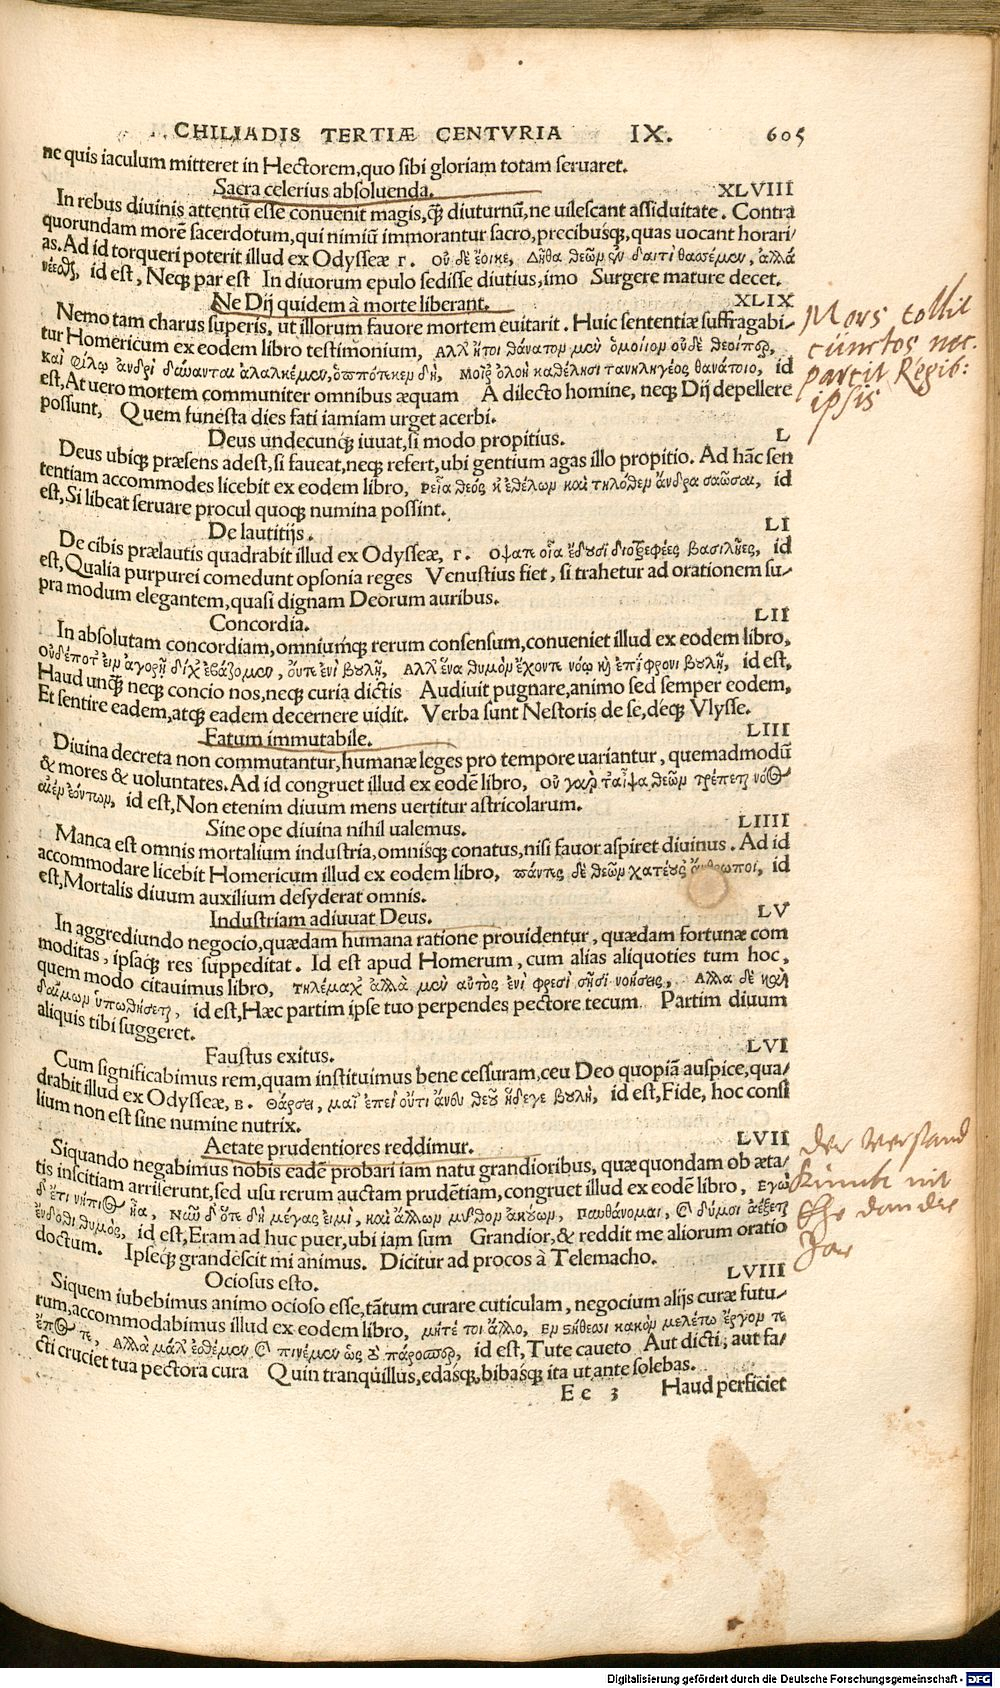 CHILIADIS TERTIÆ CENTVRIA IX. 605
ne quis iaculum mitteret in Hectorem,quo sibi gloriam totam seruaret.
Sacra celerius absoluenda. XLVIII
In rebus diuinis attentũ esse conuenit magis,q̃ diuturnũ,ne uilescant assiduitate. Contra
quorundam morẽ sacerdotum,qui nimiũ immorantur sacro,precibusq;,quas uocant horari⸗
as.Ad id torqueri poterit illud ex Odysseæ γ. οὐ δὲ ἔοικε, Δηθὰ θεῶμ ἐν δαιτὶ θαασέμεν, ἀλλὰ
νέεσθζ, id est, Neq; par est In diuorum epulo sedisse diutius,imo Surgere mature decet.
Ne Dij quidem à morte liberant. XLIX
Nemo tam charus superis, ut illorum fauore mortem euitarit. Huic sententiæ suffragabi⸗
tur Homericum ex eodem libro testimonium, Ἀλλ' ἤτοι θάνατομ μὲν ὁμοίιομ οὐδὲ θεοίπερ,
Καὶ φίλῳ ἀνδρὶ δύνανται ἀλαλκέμεν,ὁππότεκεν δὴ, Μοῖρ' ὀλοὴ καθέλησι τανηλεγέος θανάτοιο, id
est,At uero mortem communiter omnibus æquam A dilecto homine, neq; Dij depellere
possunt, Quem funesta dies fati iamiam urget acerbi.
Deus undecunq; iuuat,si modo propitius. L
Deus ubiq; præsens adest,si faueat,neq; refert,ubi gentium agas illo propitio. Ad hãc sen
tentiam accommodes licebit ex eodem libro, Ῥεῖα θεός κ' ἐθέλωμ καὶ τηλόθεμ ἄνδρα σαῶσαι, id
est,Si libeat seruare procul quoq; numina possint.
De lautitijs. LI
De cibis prælautis quadrabit illud ex Odysseæ, γ. Ὄψατε οἷα ἔδουσι διοτρεφέες βασιλῆες, id
est,Qualia purpurei comedunt opsonia reges Venustius fiet, si trahetur ad orationem su⸗
pra modum elegantem,quasi dignam Deorum auribus.
Concordia. LII
In absolutam concordiam,omniumq; rerum consensum,conueniet illud ex eodem libro,
Οὐδέποτ' εἰμ ἀγορῇ δίχ' ἐβάζομεν, οὔτε ἐνὶ βουλῇ, Ἀλλ' ἕνα θυμὸμ ἔχοντε νόῳ κỳ ἐπίφρονι βουλῇ, id est,
Haud unq̃ neq; concio nos,neq; curia dictis Audiuit pugnare,animo sed semper eodem,
Et sentire eadem,atq; eadem decernere uidit. Verba sunt Nestoris de se,deq; Vlysse.
Fatum immutabile. LIII
Diuina decreta non commutantur,humanæ leges pro tempore uariantur, quemadmodũ
& mores & uoluntates.Ad id congruet illud ex eodẽ libro, Οὐ γάρ τ' αἶψα θεῶμ τρέπετζ νόΘ
αἰὲμ ἐόντωμ, id est,Non etenim diuum mens uertitur astricolarum.
Sine ope diuina nihil ualemus. LIIII
Manca est omnis mortalium industria,omnisq; conatus,nisi fauor aspiret diuinus. Ad id
accommodare licebit Homericum illud ex eodem libro, πάντες δὲ θεῶμ χατέουσ' ἄνθρωποι, id
est,Mortalis diuum auxilium desyderat omnis.
Industriam adiuuat Deus. LV
In aggrediundo negocio,quædam humana ratione prouidentur, quædam fortunæ com
moditas, ipsaq; res suppeditat. Id est apud Homerum, cum alias aliquoties tum hoc,
quem modo citauimus libro, Τηλέμαχ' ἄλλα μὲν αὐτὸς ἐνὶ φρεσὶ σῇσι νοήσεις, Ἄλλα δὲ καὶ
δαίμωμ ὑποθήσετζ, id est,Hæc partim ipse tuo perpendes pectore tecum Partim diuum
aliquis tibi suggeret.
Faustus exitus. LVI
Cum significabimus rem,quam instituimus bene cessuram,ceu Deo quopiã auspice,qua⸗
drabit illud ex Odysseæ, β. Θάρσει, μαῖ' ἐπεὶ οὔτι ἄνευ θεοῦ ἥδεγε βουλή, id est,Fide, hoc consi
lium non est sine numine nutrix.
Aetate prudentiores reddimur. LVII
Siquando negabimus nobis eadẽ probari iam natu grandioribus, quæ quondam ob æta⸗
tis inscitiam arriserunt,sed usu rerum auctam prudẽtiam,congruet illud ex eodẽ libro, Ἐγὼ
δ' ἔτι νήπιΘ ἦα, Νῦν δ' ὅτε δὴ μέγας εἰμὶ, καὶ ἄλλωμ μῦθομ ἀκούωμ, Πυνθάνομαι, ϗ δύμοι ἀέξετζ
ἔνδοθι θυμός, id est,Eram ad huc puer,ubi iam sum Grandior,& reddit me aliorum oratio
doctum. Ipseq; grandescit mi animus. Dicitur ad procos à Telemacho.
Ociosus esto. LVIII
Siquem iubebimus animo ocioso esse,tãtum curare cuticulam, negocium alijs curæ futu⸗
rum,accommodabimus illud ex eodem libro, μήτέ τοι ἄλλο, Ἐμ στήθεσσι κακὸμ μελέτω ἔργομ τε
ἔπΘ τε, Ἀλλὰ μάλ' ἐσθέμεν ϗ πινέμεν ὡς τὸ πάροσπερ, id est,Tute caueto Aut dicti, aut fa⸗
cti cruciet tua pectora cura Quin tranquillus,edasq;,bibasq; ita ut ante solebas.
Ee 3 Haud perficiet
Mors tollit
cunctos nec
parcit Regib:
ipsis
der Verstand
kumbt nit
Ehe dan die
Jar
Digitalisierung gefördert durch die Deutsche Forschungsgemeinschaft - DFG